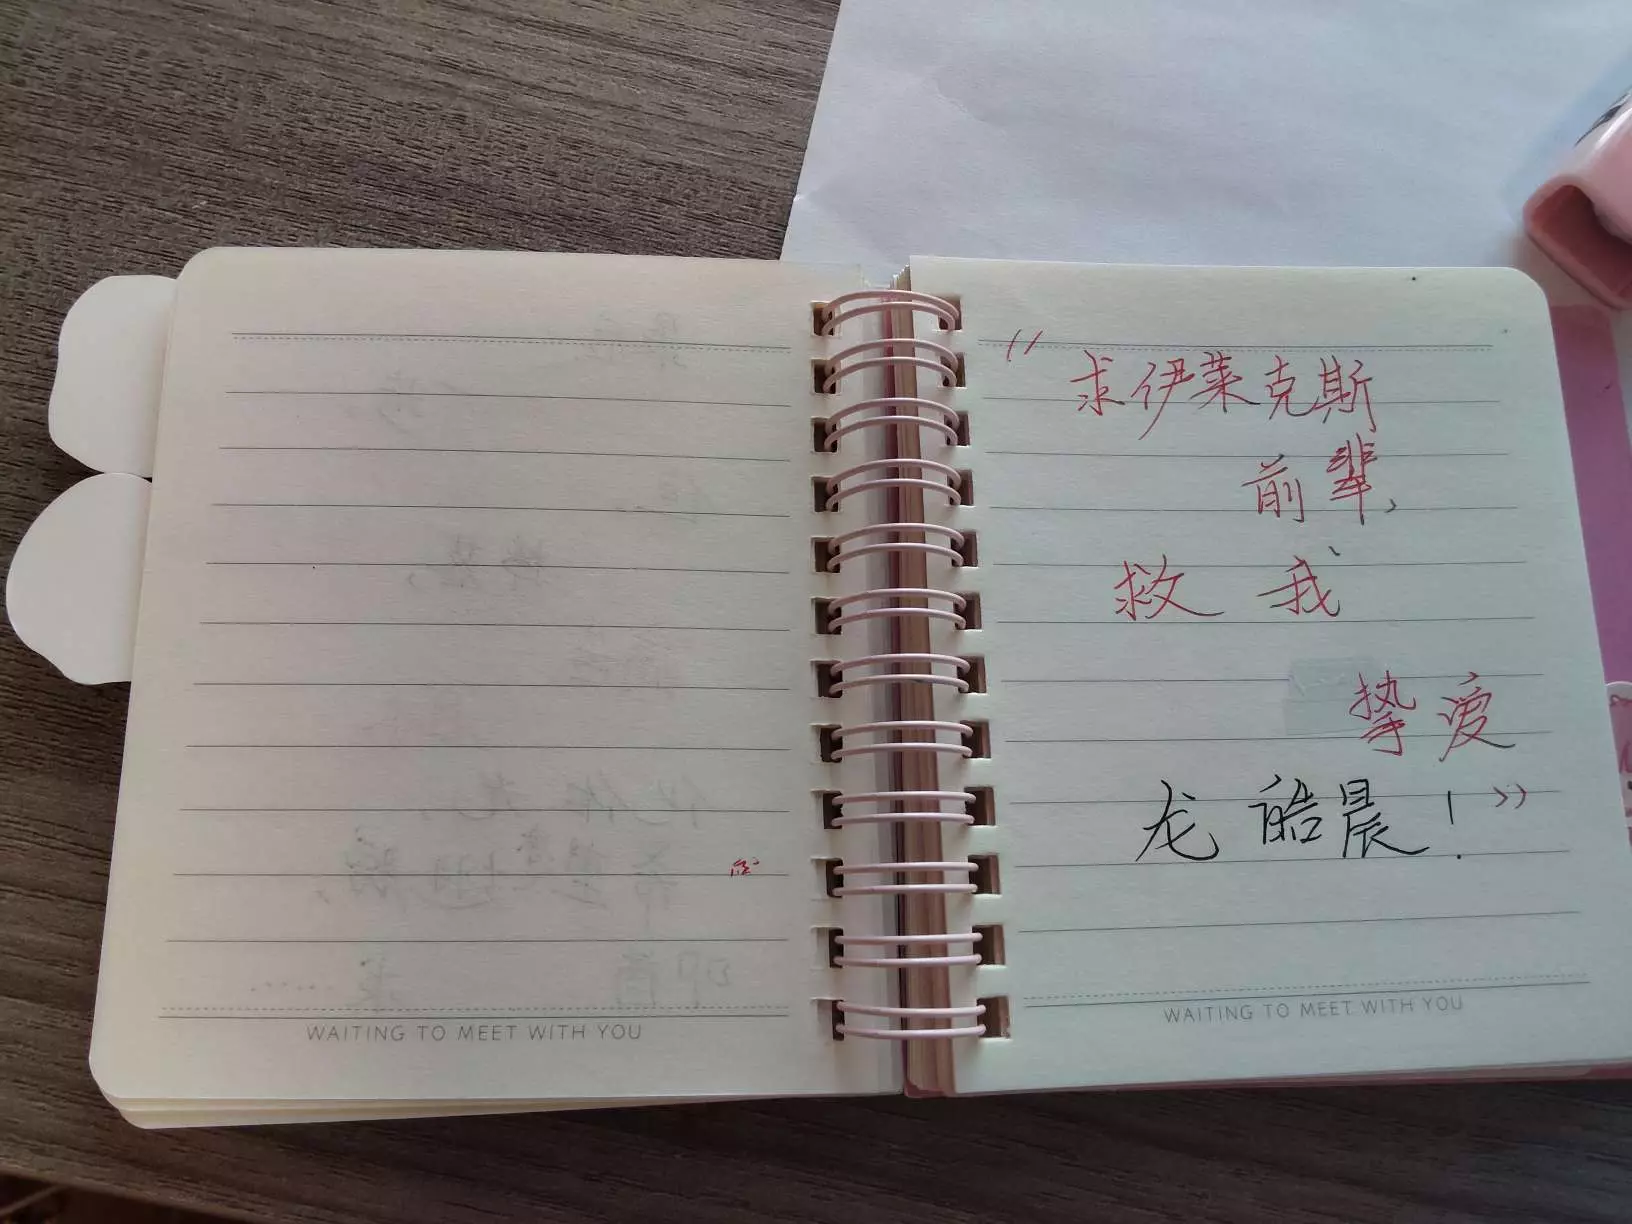 WAITING TO MEET WITH YOU
“求伊莱克斯
前辈，
救 我
挚爱
龙皓晨！”
WAITING TO MEET WITH YOU